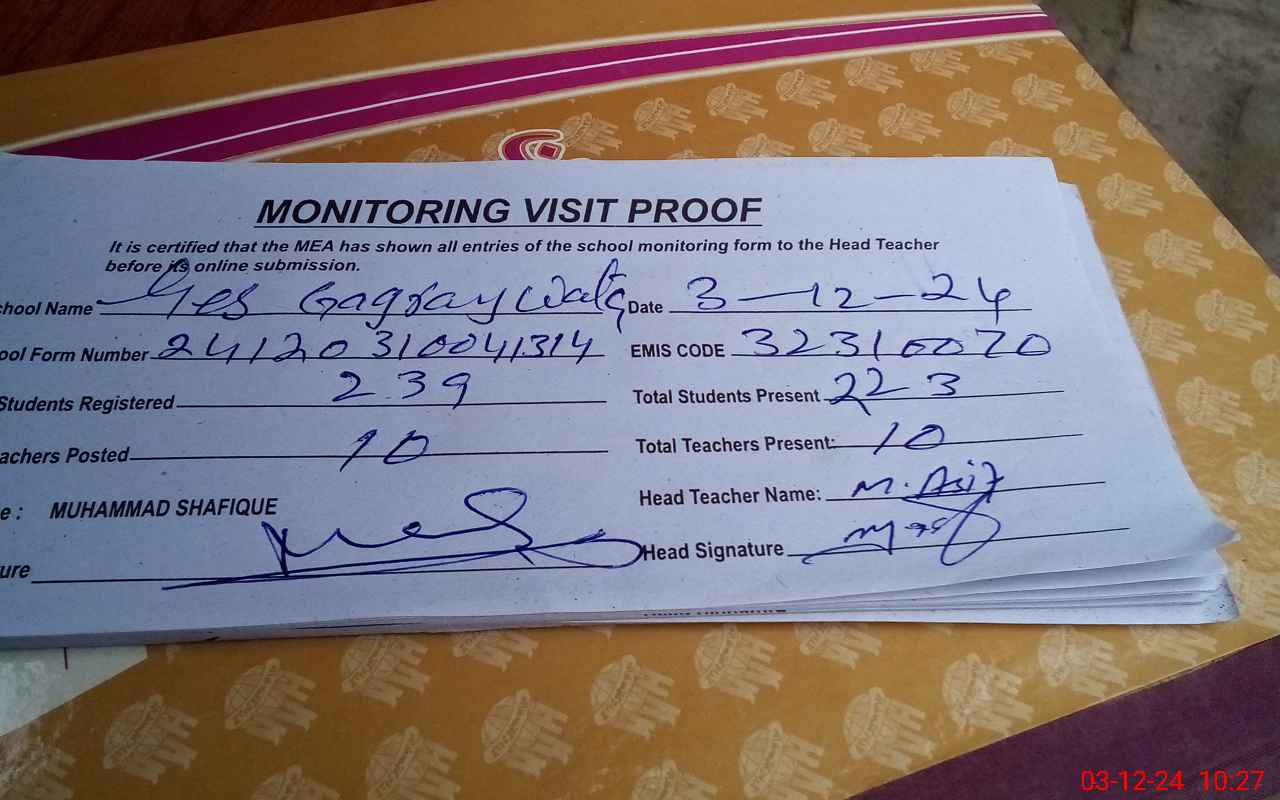 MONITORING VISIT PROOF
It is certified that the MEA has shown all entries of the school monitoring form to the Head Teacher
before its online submission.
chool Name Ges Gagray Wala Date 3-12-24
ool Form Number 24120310041314 EMIS CODE 32310070
Students Registered 239 Total Students Present 223
achers Posted 10 Total Teachers Present: 10
e : MUHAMMAD SHAFIQUE Head Teacher Name: M. Asif
ure Head Signature
03-12-24 10:27